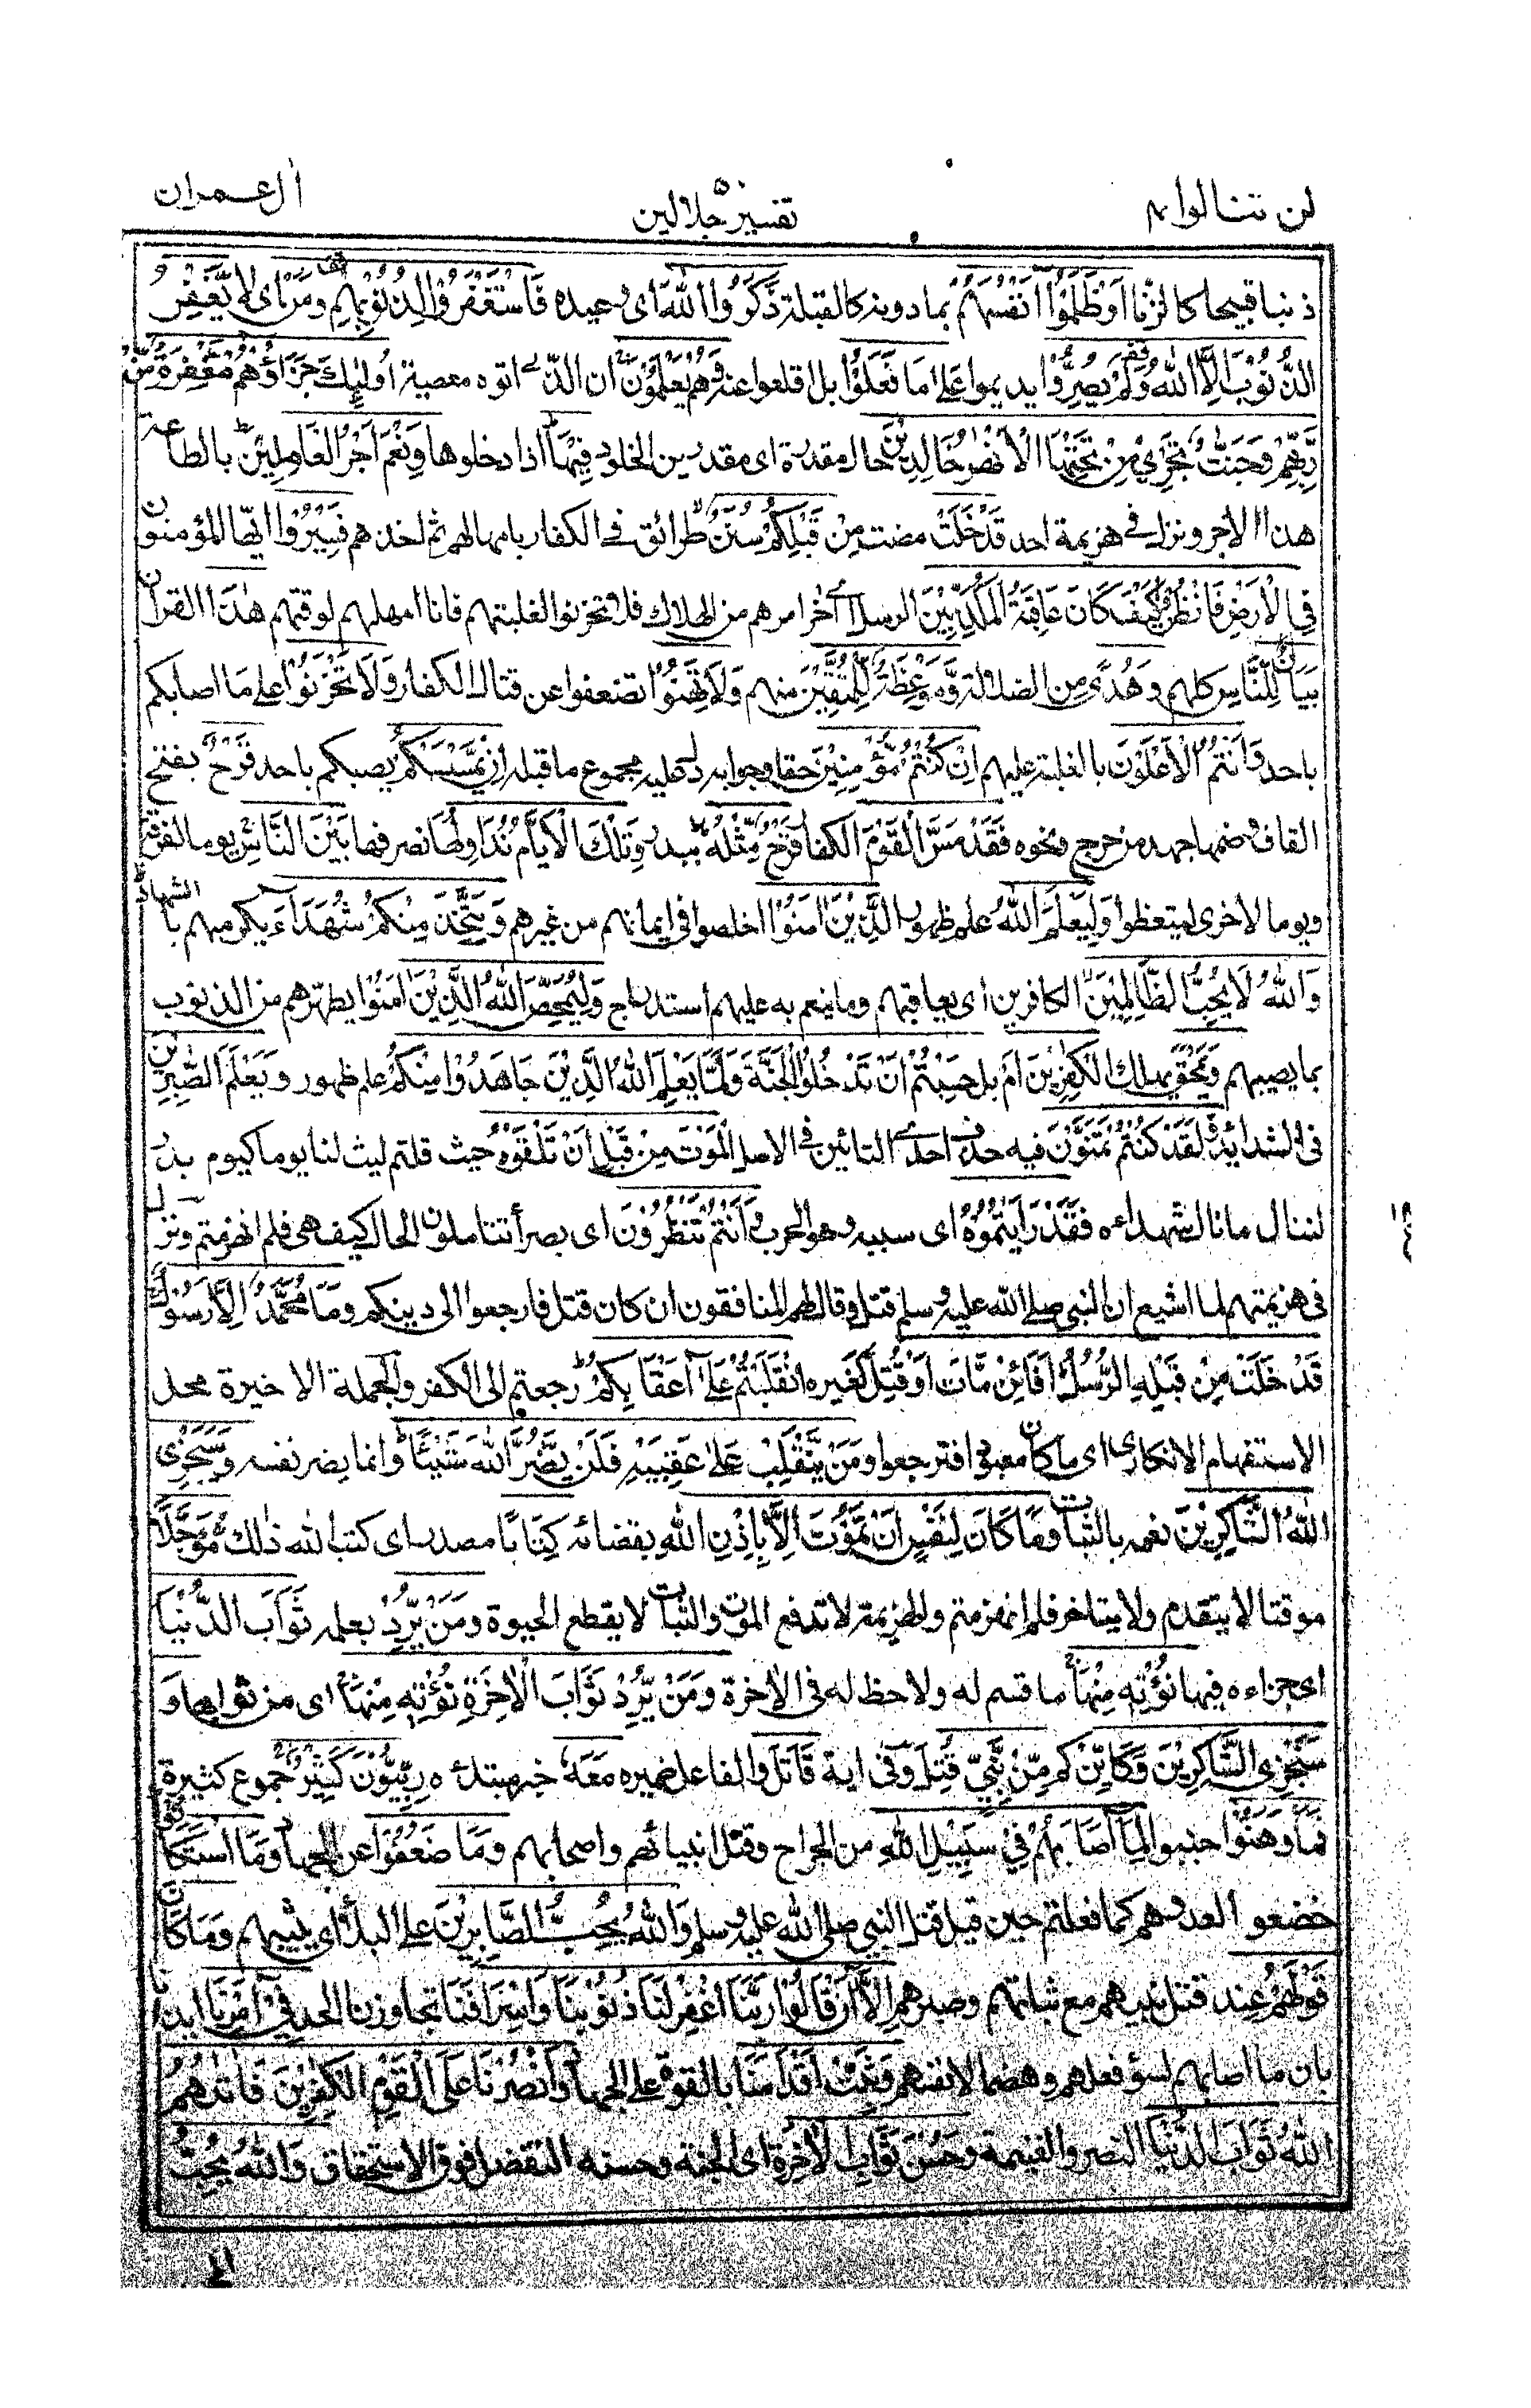 لن تنالوا ٤
تفسير جلالين
اٰل عمران
ذنبا قبيحا كالزنا اَوْ ظَلَمُوْٓا اَنْفُسَهُمْ بما دونه كالقبلة ذَكَرُوا اللّٰهَ اى وعيده فَاسْتَغْفَرُوْا لِذُنُوْبِهِمْ وَمَنْ اى لا يَّغْفِرُ
الذُّنُوْبَ اِلَّا اللّٰهُ وَلَمْ يُصِرُّوْا يديموا عَلٰى مَا فَعَلُوْا بل اقلعوا عنه وَهُمْ يَعْلَمُوْنَ ان الذى اتوه معصية اُولٰٓئِكَ جَزَآؤُهُمْ مَّغْفِرَةٌ مِّنْ
رَّبِّهِمْ وَجَنّٰتٌ تَجْرِيْ مِنْ تَحْتِهَا الْاَنْهٰرُ خَالِدِيْنَ حال مقدرة اى مقدرين الخلود فِيْهَا اذا دخلوها وَنِعْمَ اَجْرُ الْعَامِلِيْنَ بالطاعة
هذا الاجر ونزل فى هزيمة احد قَدْ خَلَتْ مضت مِنْ قَبْلِكُمْ سُنَنٌ طرائق فى الكفار بامهالهم ثم اخذهم فَسِيْرُوْا ايها المؤمنون
فِى الْاَرْضِ فَانْظُرُوْا كَيْفَ كَانَ عَاقِبَةُ الْمُكَذِّبِيْنَ الرسل اى اٰخر امرهم من الهلاك فلا تحزنوا لغلبتهم فانا امهلهم لوقتهم هٰذَا القراٰن
بَيَانٌ لِّلنَّاسِ كلهم وَهُدًى من الضلالة وَّمَوْعِظَةٌ لِّلْمُتَّقِيْنَ منهم وَلَا تَهِنُوْا تضعفوا عن قتال الكفار وَلَا تَحْزَنُوْا على ما اصابكم
باحد وَاَنْتُمُ الْاَعْلَوْنَ بالغلبة عليهم اِنْ كُنْتُمْ مُّؤْمِنِيْنَ حقا وجوابه دل عليه مجموع ما قبله اِنْ يَّمْسَسْكُمْ يصبكم باحد قَرْحٌ بفتح
القاف وضمها جهد من جرح ونحوه فَقَدْ مَسَّ الْقَوْمَ الكفار قَرْحٌ مِّثْلُهٗ ببدر وَتِلْكَ الْاَيَّامُ نُدَاوِلُهَا نصرفها بَيْنَ النَّاسِ يوما لفرقة
ويوما لاخرى ليتعظوا وَلِيَعْلَمَ اللّٰهُ علم ظهور الَّذِيْنَ اٰمَنُوْا اخلصوا فى ايمانهم من غيرهم وَيَتَّخِذَ مِنْكُمْ شُهَدَآءَ يكرمهم بالشهادة
وَاللّٰهُ لَا يُحِبُّ الظّٰلِمِيْنَ الكافرين اى يعاقبهم وما ينعم به عليهم استدراج وَلِيُمَحِّصَ اللّٰهُ الَّذِيْنَ اٰمَنُوْا يطهرهم من الذنوب
بما يصيبهم وَيَمْحَقَ يهلك الْكٰفِرِيْنَ اَمْ بل حَسِبْتُمْ اَنْ تَدْخُلُوا الْجَنَّةَ وَلَمَّا يَعْلَمِ اللّٰهُ الَّذِيْنَ جَاهَدُوْا مِنْكُمْ علم ظهور وَيَعْلَمَ الصّٰبِرِيْنَ
فى الشدائد وَلَقَدْ كُنْتُمْ تَمَنَّوْنَ فيه حذف احدى التائين فى الاصل الْمَوْتَ مِنْ قَبْلِ اَنْ تَلْقَوْهُ حيث قلتم ليت لنا يوما كيوم بدر
لننال ما نال شهداءه فَقَدْ رَاَيْتُمُوْهُ اى سببه وهو الحرب وَاَنْتُمْ تَنْظُرُوْنَ اى بصراء تتاملون الحال كيف هى فلم انهزمتم ونزل
فى هزيمتهم لما اشيع ان النبى صلى الله عليه وسلم قتل وقال لهم المنافقون ان كان قتل فارجعوا الى دينكم وَمَا مُحَمَّدٌ اِلَّا رَسُوْلٌ
قَدْ خَلَتْ مِنْ قَبْلِهِ الرُّسُلُ اَفَائِنْ مَّاتَ اَوْ قُتِلَ كغيره انْقَلَبْتُمْ عَلٰٓى اَعْقَابِكُمْ رجعتم الى الكفر والجملة الاخيرة محل
الاستفهام الانكارى اى ما كان معبودا فترجعوا وَمَنْ يَّنْقَلِبْ عَلٰى عَقِبَيْهِ فَلَنْ يَّضُرَّ اللّٰهَ شَيْئًا وانما يضر نفسه وَسَيَجْزِى
اللّٰهُ الشّٰكِرِيْنَ نعمه بالثبات وَمَا كَانَ لِنَفْسٍ اَنْ تَمُوْتَ اِلَّا بِاِذْنِ اللّٰهِ بقضائه كِتَابًا مصدر اى كتب الله ذلك مُّؤَجَّلًا
موقتا لا يتقدم ولا يتاخر فلم انهزمتم والهزيمة لا تدفع الموت والثبات لا يقطع الحيوة وَمَنْ يُّرِدْ بعمله ثَوَابَ الدُّنْيَا
اى جزاءه فيها نُؤْتِهٖ مِنْهَا ما قسم له ولا حظ له فى الاٰخرة وَمَنْ يُّرِدْ ثَوَابَ الْاٰخِرَةِ نُؤْتِهٖ مِنْهَا اى من ثوابها وَ
سَنَجْزِى الشّٰكِرِيْنَ وَكَاَيِّنْ كم مِّنْ نَّبِيٍّ قُتِلَ وفى اية قَاتَلَ والفاعل ضميره مَعَهٗ خبر مبتدئه رِبِّيُّوْنَ كَثِيْرٌ جموع كثيرة
فَمَا وَهَنُوْا جبنوا لِمَآ اَصَابَهُمْ فِيْ سَبِيْلِ اللّٰهِ من الجراح وقتل انبيائهم واصحابهم وَمَا ضَعُفُوْا عن الجهاد وَمَا اسْتَكَانُوْا
خضعوا لعدوهم كما فعلتم حين قيل قتل النبى صلى الله عليه وسلم وَاللّٰهُ يُحِبُّ الصَّابِرِيْنَ على البلاء اى يثيبهم وَمَا كَانَ
قَوْلَهُمْ عند قتل نبيهم مع ثباتهم وصبرهم اِلَّآ اَنْ قَالُوْا رَبَّنَا اغْفِرْ لَنَا ذُنُوْبَنَا وَاِسْرَافَنَا تجاوزنا الحد فِيْٓ اَمْرِنَا ايذانا
بان ما اصابهم لسوء فعلهم وهضما لانفسهم وَثَبِّتْ اَقْدَامَنَا بالقوة على الجهاد وَانْصُرْنَا عَلَى الْقَوْمِ الْكٰفِرِيْنَ فَاٰتٰىهُمُ
اللّٰهُ ثَوَابَ الدُّنْيَا النصر والغنيمة وَحُسْنَ ثَوَابِ الْاٰخِرَةِ اى الجنة وحسنه التفضل فوق الاستحقاق وَاللّٰهُ يُحِبُّ